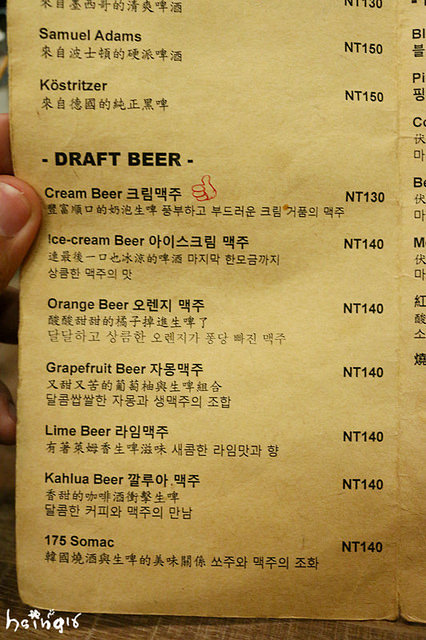 來自墨西哥的清爽啤酒 NT130
Samuel Adams NT150
來自波士頓的硬派啤酒
Köstritzer NT150
來自德國的純正黑啤
- DRAFT BEER -
Cream Beer 크림맥주 NT130
豐富順口的奶泡生啤 풍부하고 부드러운 크림 거품의 맥주
Ice-cream Beer 아이스크림 맥주 NT140
連最後一口也冰涼的啤酒 마지막 한모금까지
상큼한 맥주의 맛
Orange Beer 오렌지 맥주 NT140
酸酸甜甜的橘子掉進生啤了
달달하고 상큼한 오렌지가 퐁당 빠진 맥주
Grapefruit Beer 자몽맥주 NT140
又甜又苦的葡萄柚與生啤組合
달콤쌉쌀한 자몽과 생맥주의 조합
Lime Beer 라임맥주 NT140
有著萊姆香生啤滋味 새콤한 라임맛과 향
Kahlua Beer 깔루아 맥주 NT140
香甜的咖啡酒衝擊生啤
달콤한 커피와 맥주의 만남
175 Somac NT140
韓國燒酒與生啤的美味關係 쏘주와 맥주의 조화
Bl
블
Pi
핑
Co
伏
마
Be
伏
마
M
伏
마
紅
酸
소
燒